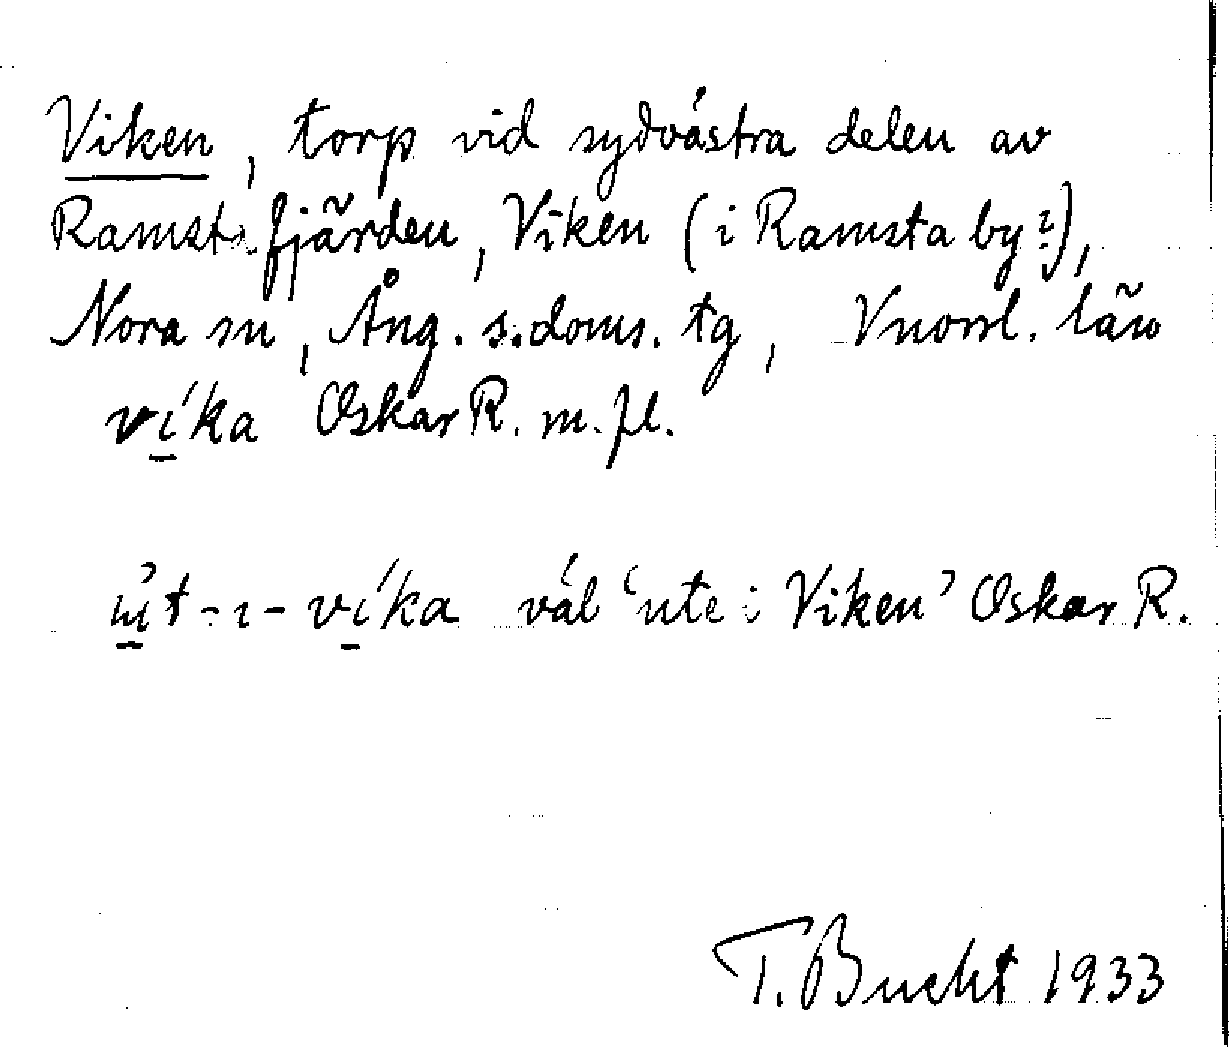 Viken, torp vid sydvästra delen av
Ramstafjärden, Viken (i Ramsta by?),
Nora sn, Ång. s. doms. tg, Vnorrl. län
ví̱ka Oskar R. m. fl.
ṳ̱́t-ı-ví̱ka väl 'ute i Viken' Oskar R.
T. Bucht 1933